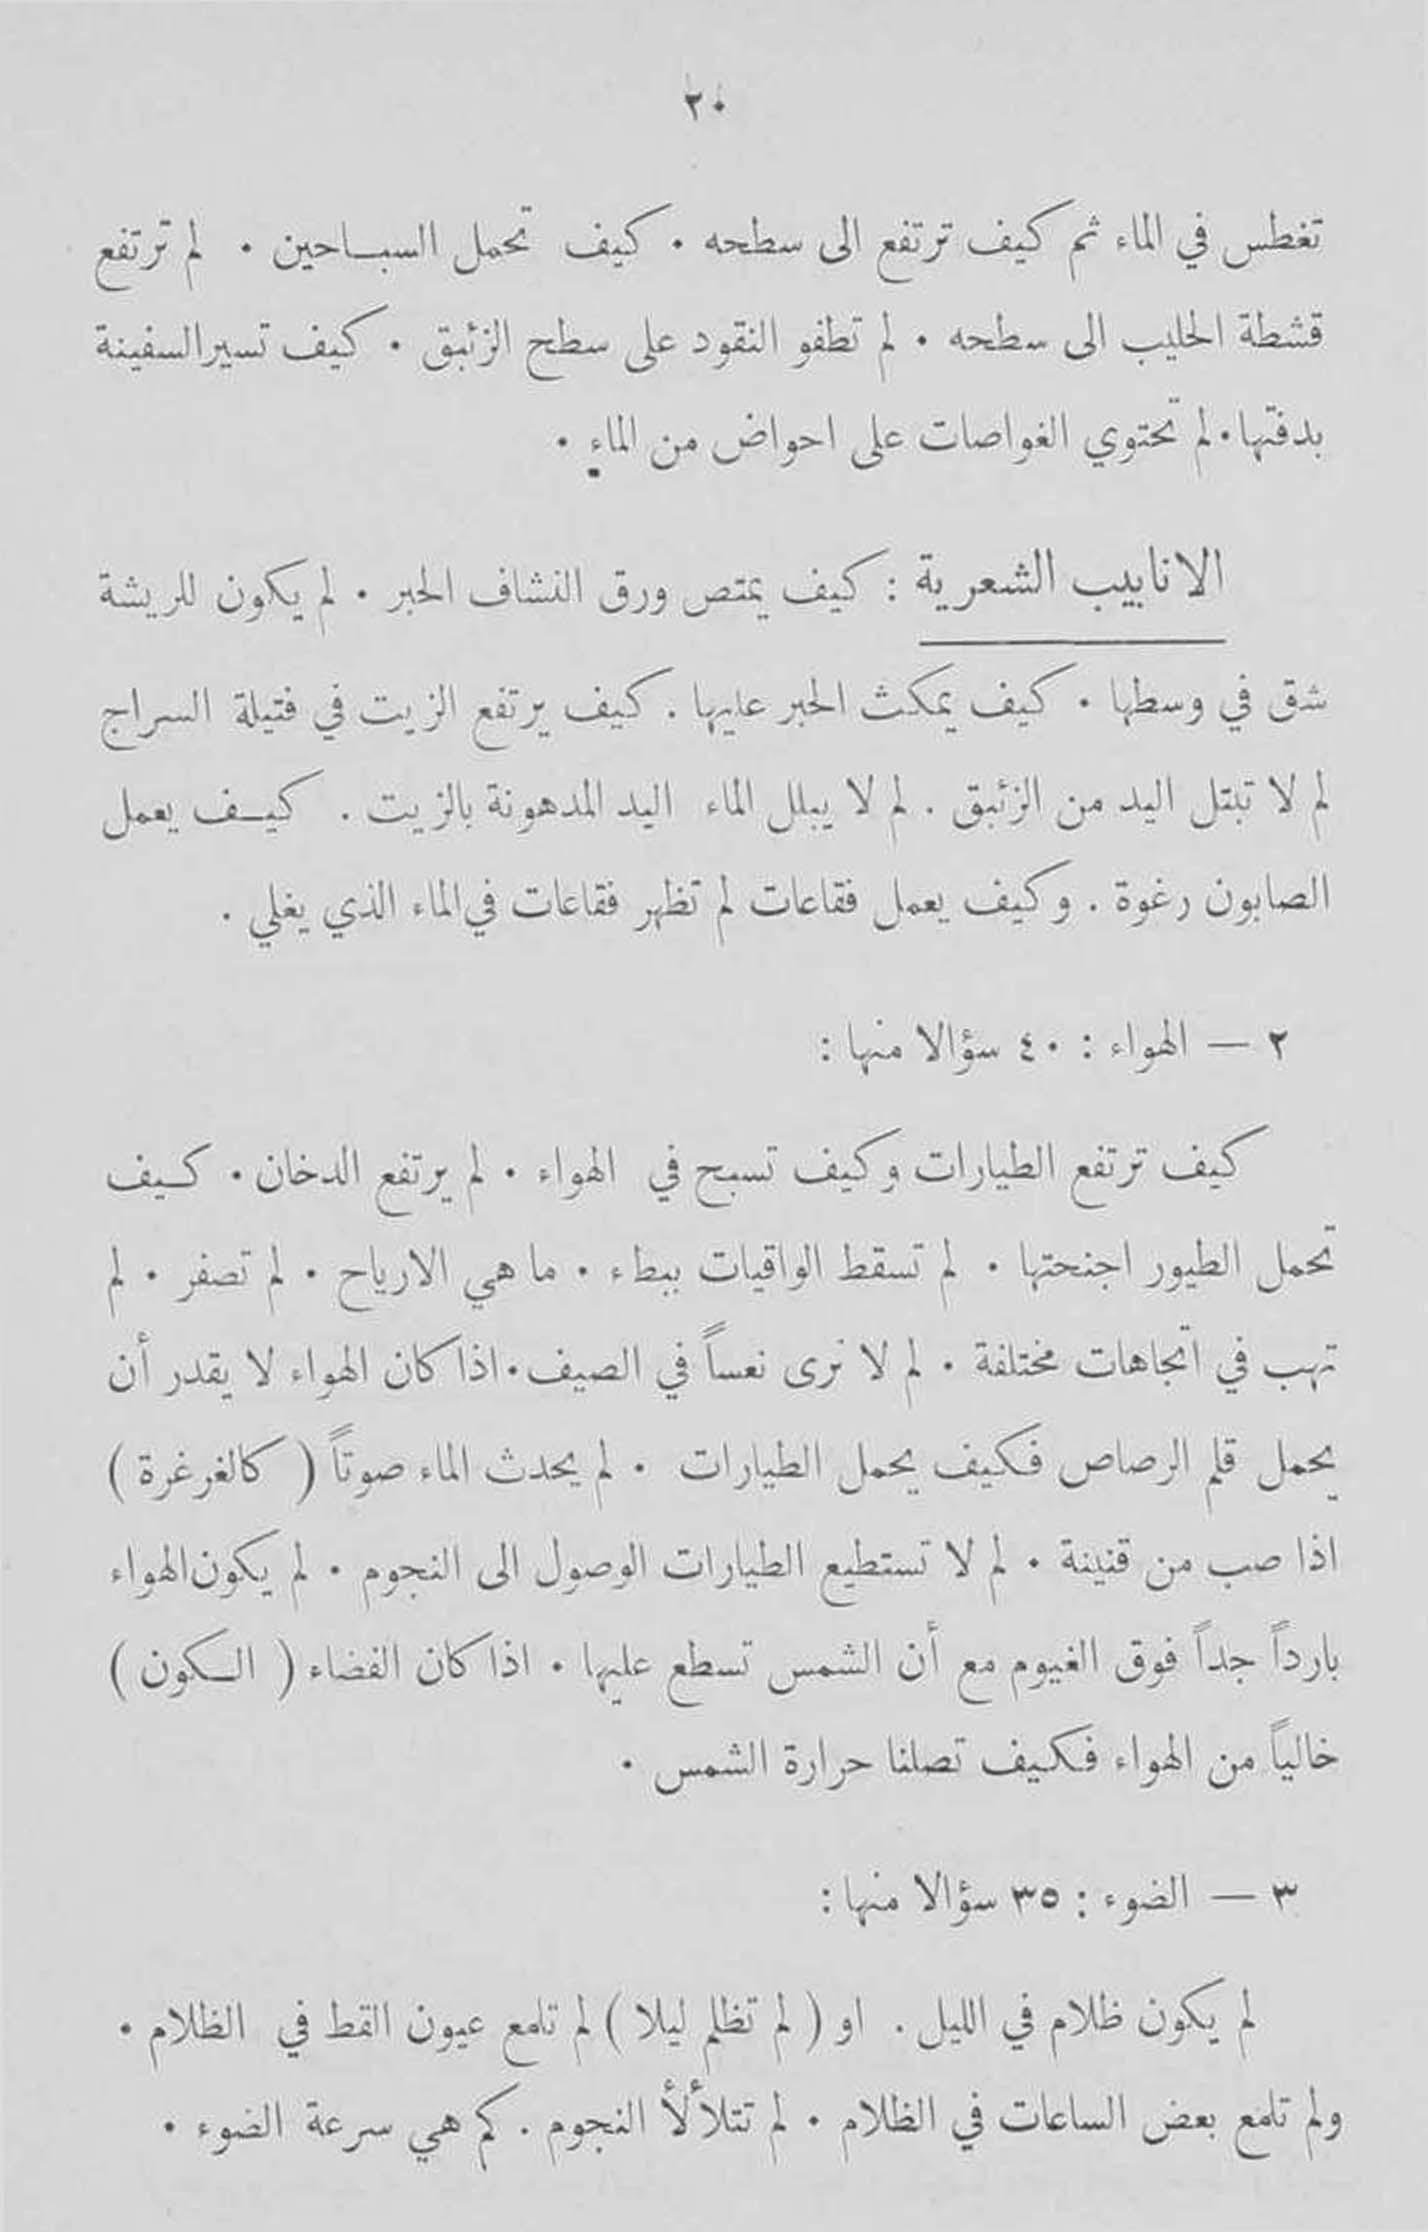 ٢٠
تغطس في الماء ثم كيف ترتفع الى سطحه . كيف تحمل السباحين . لم ترتفع
قشطة الحليب الى سطحه . لم تطفو النقود على سطح الزئبق . كيف تسير السفينة
بدفتها . لم تحتوي الغواصات على احواض من الماء .
الانابيب الشعرية : كيف يمتص ورق النشاف الحبر . لم يكون للريشة
شق في وسطها . كيف يمكث الحبر عليها . كيف يرتفع الزيت في فتيلة السراج
لم لا تبتل اليد من الزئبق . لم لا يبلل الماء اليد المدهونة بالزيت . كيف يعمل
الصابون رغوة . وكيف يعمل فقاعات لم تظهر فقاعات في الماء الذي يغلي .
٢ — الهواء : ٤٠ سؤالا منها :
كيف ترتفع الطيارات وكيف تسبح في الهواء . لم يرتفع الدخان . كيف
تحمل الطيور اجنحتها . لم تسقط الواقيات ببطء . ما هي الارياح . لم تصفر . لم
تهب في اتجاهات مختلفة . لم لا نرى نعساً في الصيف . اذا كان الهواء لا يقدر أن
يحمل قلم الرصاص فكيف يحمل الطيارات . لم يحدث الماء صوتاً ( كالغرغرة )
اذا صب من قنينة . لم لا تستطيع الطيارات الوصول الى النجوم . لم يكون الهواء
بارداً جداً فوق الغيوم مع أن الشمس تسطع عليها . اذا كان الفضاء ( الكون )
خالياً من الهواء فكيف تصلنا حرارة الشمس .
٣ — الضوء : ٣٥ سؤالا منها :
لم يكون ظلام في الليل . او ( لم تظلم ليلا ) لم تلمع عيون القط في الظلام .
ولم تلمع بعض الساعات في الظلام . لم تتلألأ النجوم . كم هي سرعة الضوء .